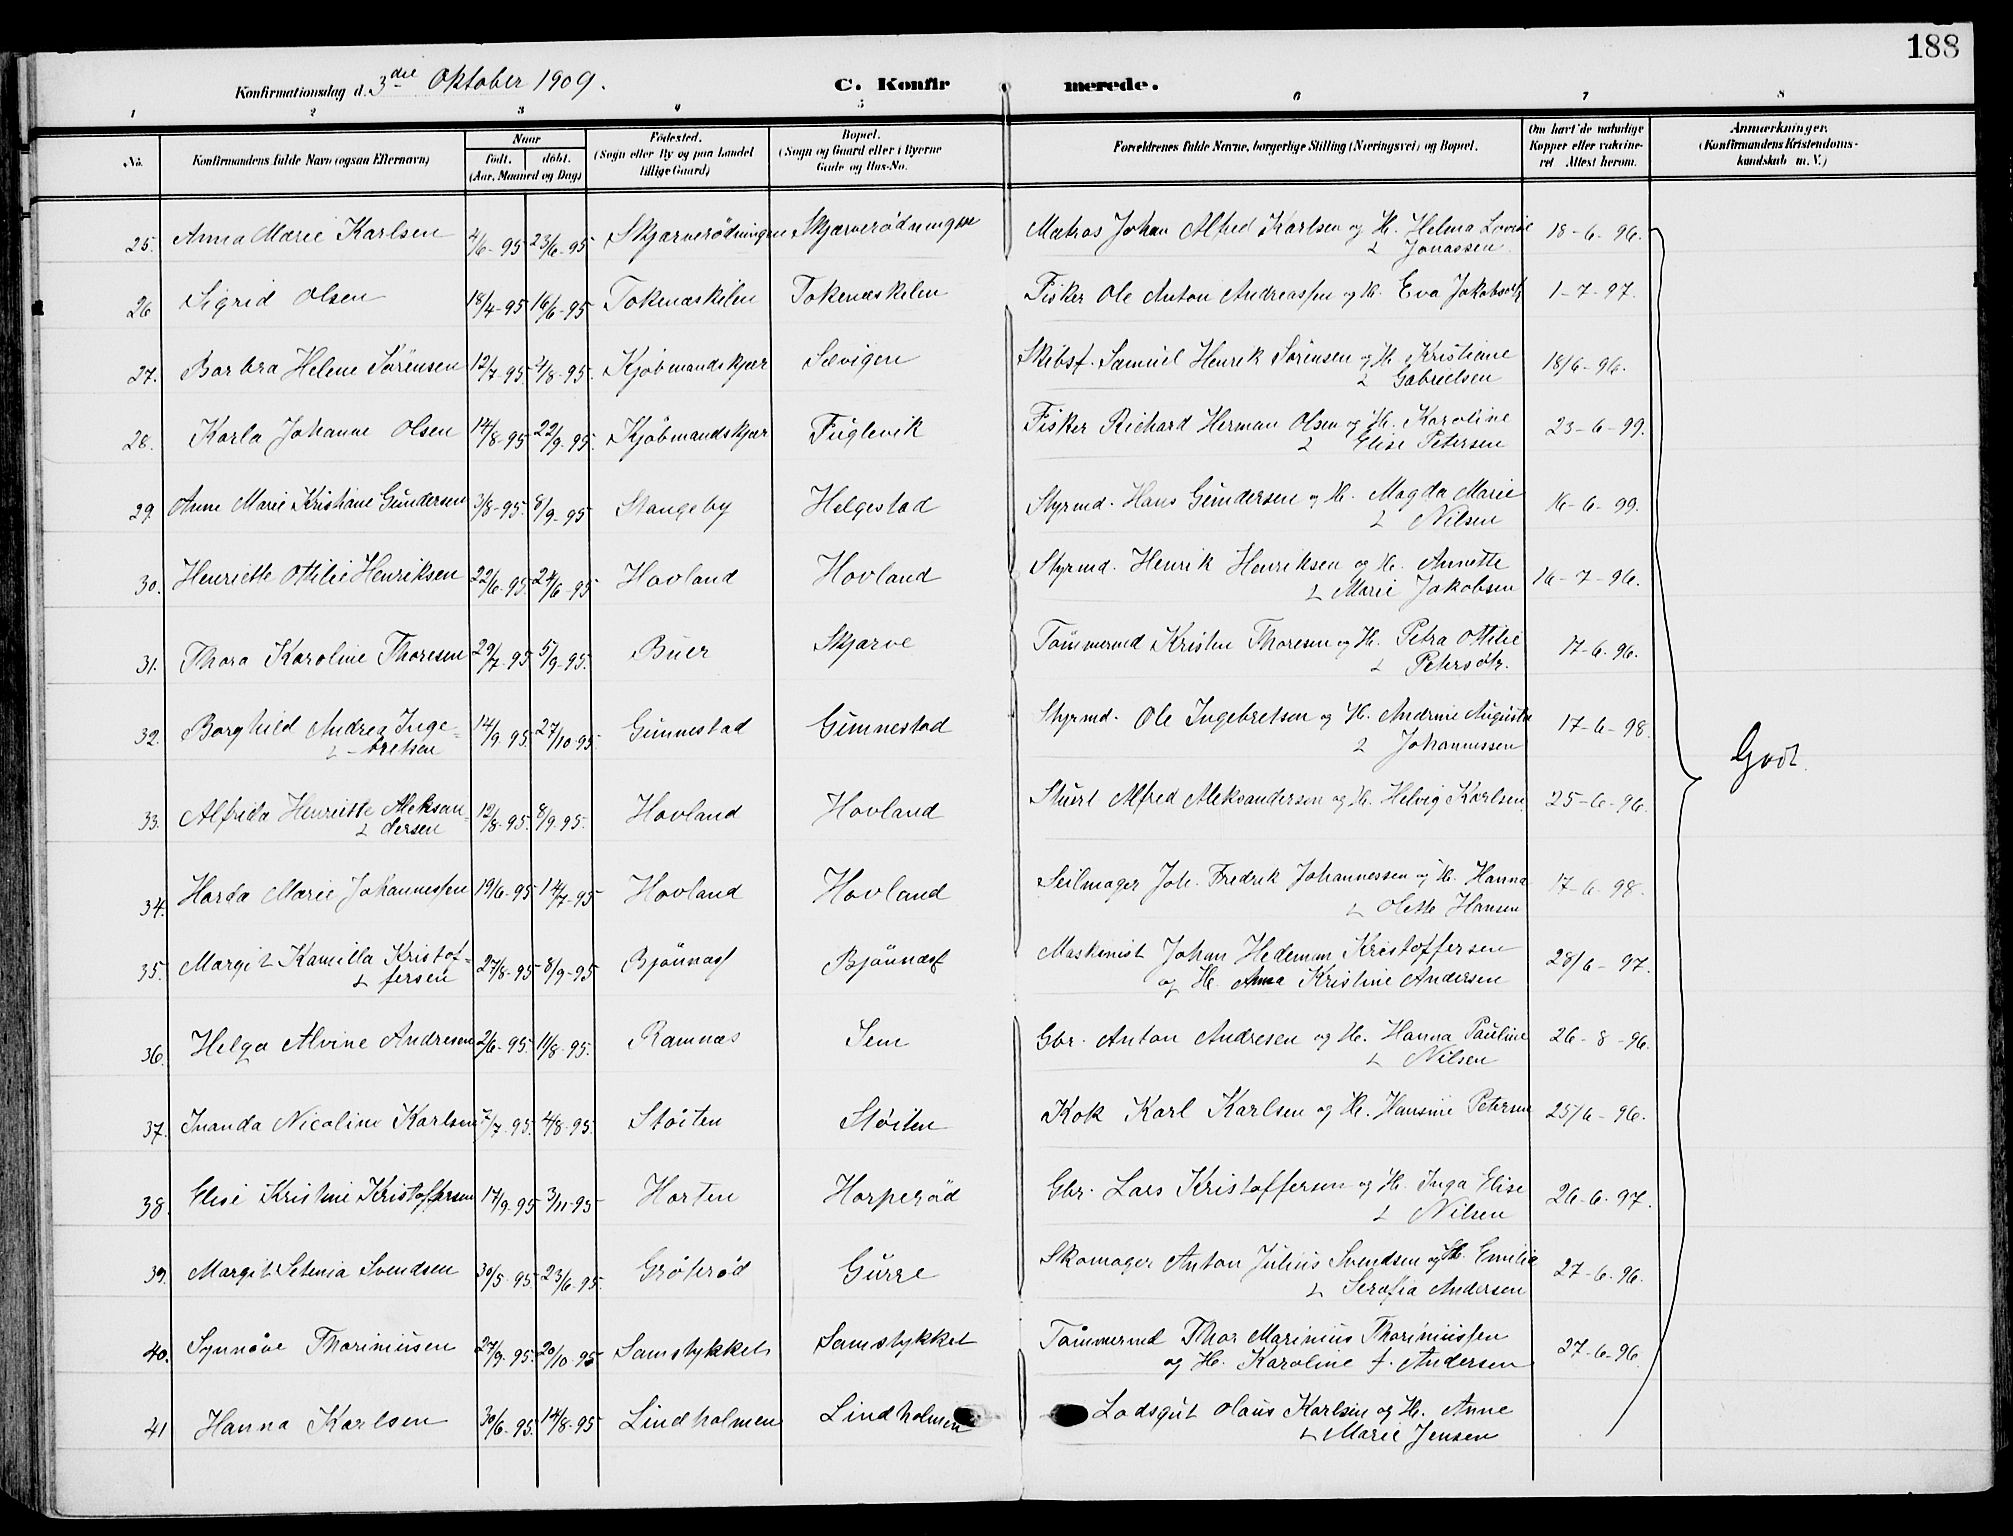 188
Konfirmationsdag d. 3die Oktober 1909.
C. Konfirmerede.
1 2 3 4 5 6 7 8
No.
Konfirmandens fulde Navn (ogsaa Efternavn)
Naar
født. døbt.
(Aar, Maaned og Dag)
Fødested.
(Sogn eller By og paa Landet
tillige Gaard)
Bopæl.
(Sogn og Gaard eller i Byerne
Gade og Hus-No.
Forældrenes fulde Navne, borgerlige Stilling (Næringsvei) og Bopæl.
Om havt de naturlige
Kopper eller vaccine-
ret Attest herom.
Anmærkninger.
(Konfirmandens Kristendoms-
kundskab m. V.)
25. Anna Marie Karlsen 4/6-95 23/6-95 Skjærverødningen Skjærverødningen Matros Johan Alfred Karlsen og H. Helma Lovise 18-6-96.
Jonassen.
26 Sigrid Olsen 18/4-95 16/6-95 Tokenæskilen Tokenæskilen Fisker Ole Anton Andreassen og H. Eva Jakobsd. 1-7-97.
27. Barbra Helene Sørensen 12/7-95. 4/8-95. Kjøbmandskjær Sævigen Skibsf. Samuel Henrik Sørensen og H. Kristiane 18/6-96.
Gabrielsen
28. Karla Johanne Olsen 14/8-95 22/9-95. Kjøbmandskjær Fuglevik Fisker Richard Herman Olsen og H. Karoline 23-6-99.
Elise Petersen
29. Anne Marie Kristiane Gundersen 3/8-95. 8/9-95 Stangeby Helgestad Styrmd. Hans Gundersen og H. Magda Marie 16-6-99.
Nilsen
30. Henriette Otilie Henriksen 22/6-95. 24/6-95 Hovland Hovland Styrmd. Henrik Henriksen og H. Annette 16-7-96.
Marie Jakobsen
31. Thora Karoline Thoresen 29/7-95 5/9-95. Buer Skjærve Tømmermd Kristen Thoresen og H. Petra Otilie 17-6-96.
Petersdtr.
32. Borghild Andrea Inge- 14/9-95. 27/10-95 Gunnestad Gunnestad Styrmd. Ole Ingebretsen og H. Andrine Augusta 17-6-98.
bretsen Johannessen
33. Alfrida Henriette Aleksan- 12/8-95. 8/9-95. Hovland Hovland Stuert Alfred Aleksandersen og H. Helvig Karlsen. 25-6-96.
dersen
34. Harda Marie Johannessen 19/6-95 14/7-95 Hovland Hovland Seilmager Joh. Fredrik Johannessen og H. Hanna 17-6-98.
Olette Hansen
35. Margit Kamilla Kristof- 27/8-95 8/9-95 Bjønnæs Bjønnæs Maskinist Johan Hedeman Kristoffersen 28/6-97.
fersen og H. Anna Kristine Andersen
36. Helga Alvine Andresen 2/6-95. 11/8-95. Ramnæs Sem Gbr. Anton Andresen og H. Hanna Pauline 26-8-96.
Nilsen
37. Inanda Nicoline Karlsen 7/7-95. 4/8-95. Støiten Støiten Kok Karl Karlsen og H. Hansine Petersen 25/6-96.
38. Elise Kristine Kristoffersen 14/9-95 3/11-95 Horten Horperød Gbr. Lars Kristoffersen og H. Inga Elise 26-6-97.
Nilsen
39. Margit Setenia Svendsen 30/5-95. 23/6-95. Grøterød Gurre Skomager Anton Julius Svendsen og H. Emilia 27-6-96.
Serafia Andersen
40. Synnøve Thoriniusen 27/9-95. 20/10-95 Samstykket Samstykket Tømmermd Thor Marinius Thoriniussen 27-6-96.
og H. Karoline f. Andersen
41 Hanna Karlsen 30/6-95. 14/8-95 Lindholmen Lindholmen Lodsgut Olaus Karlsen og H. Anne
Marie Jensen
Godt.